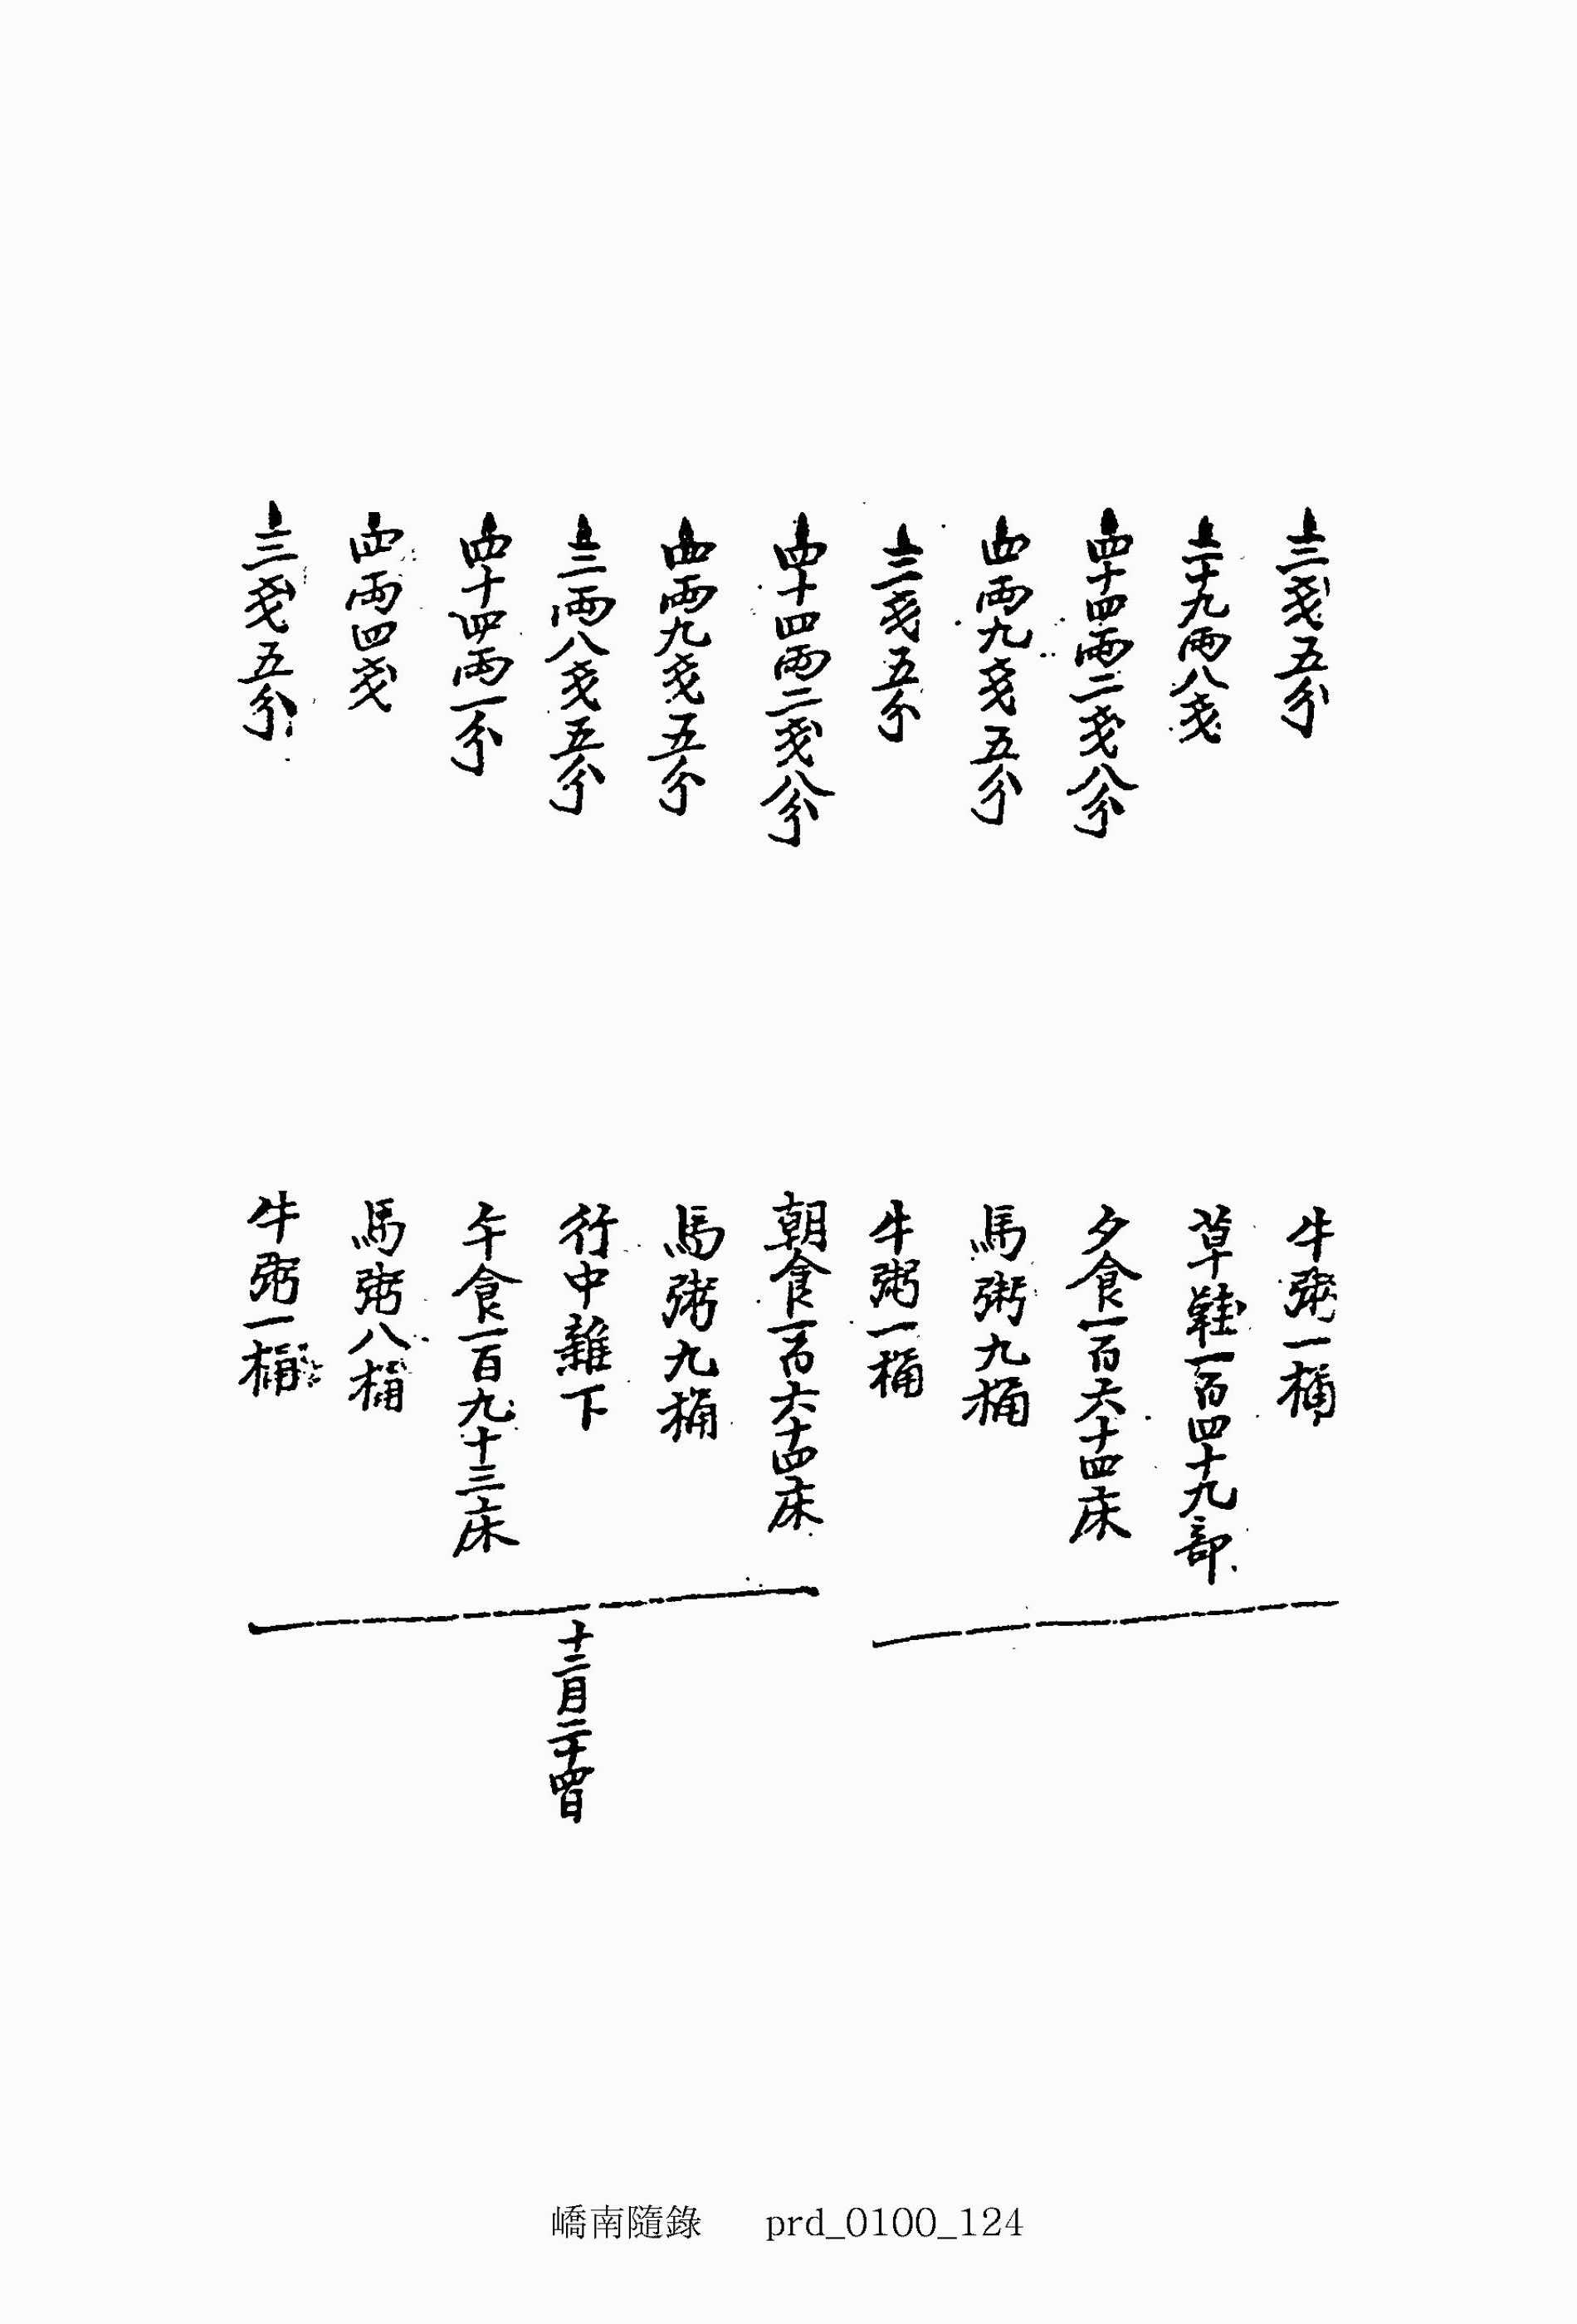 上三戔五分 牛粥一桶
上二十九兩八戔 草鞋一百四十九部
上四十四兩二戔八分 夕食一百六十四床
上四兩九戔五分 馬粥九桶
上三戔五分 牛粥一桶
上四十四兩二戔八分 朝食一百六十四床
上四兩九戔五分 馬粥九桶
上二兩八戔五分 行中雜下 十二月二十四日
上四十四兩一分 午食一百九十三床
上四兩四戔 馬粥八桶
上三戔五分 牛粥一桶
嶠南隨錄 prd_0100_124